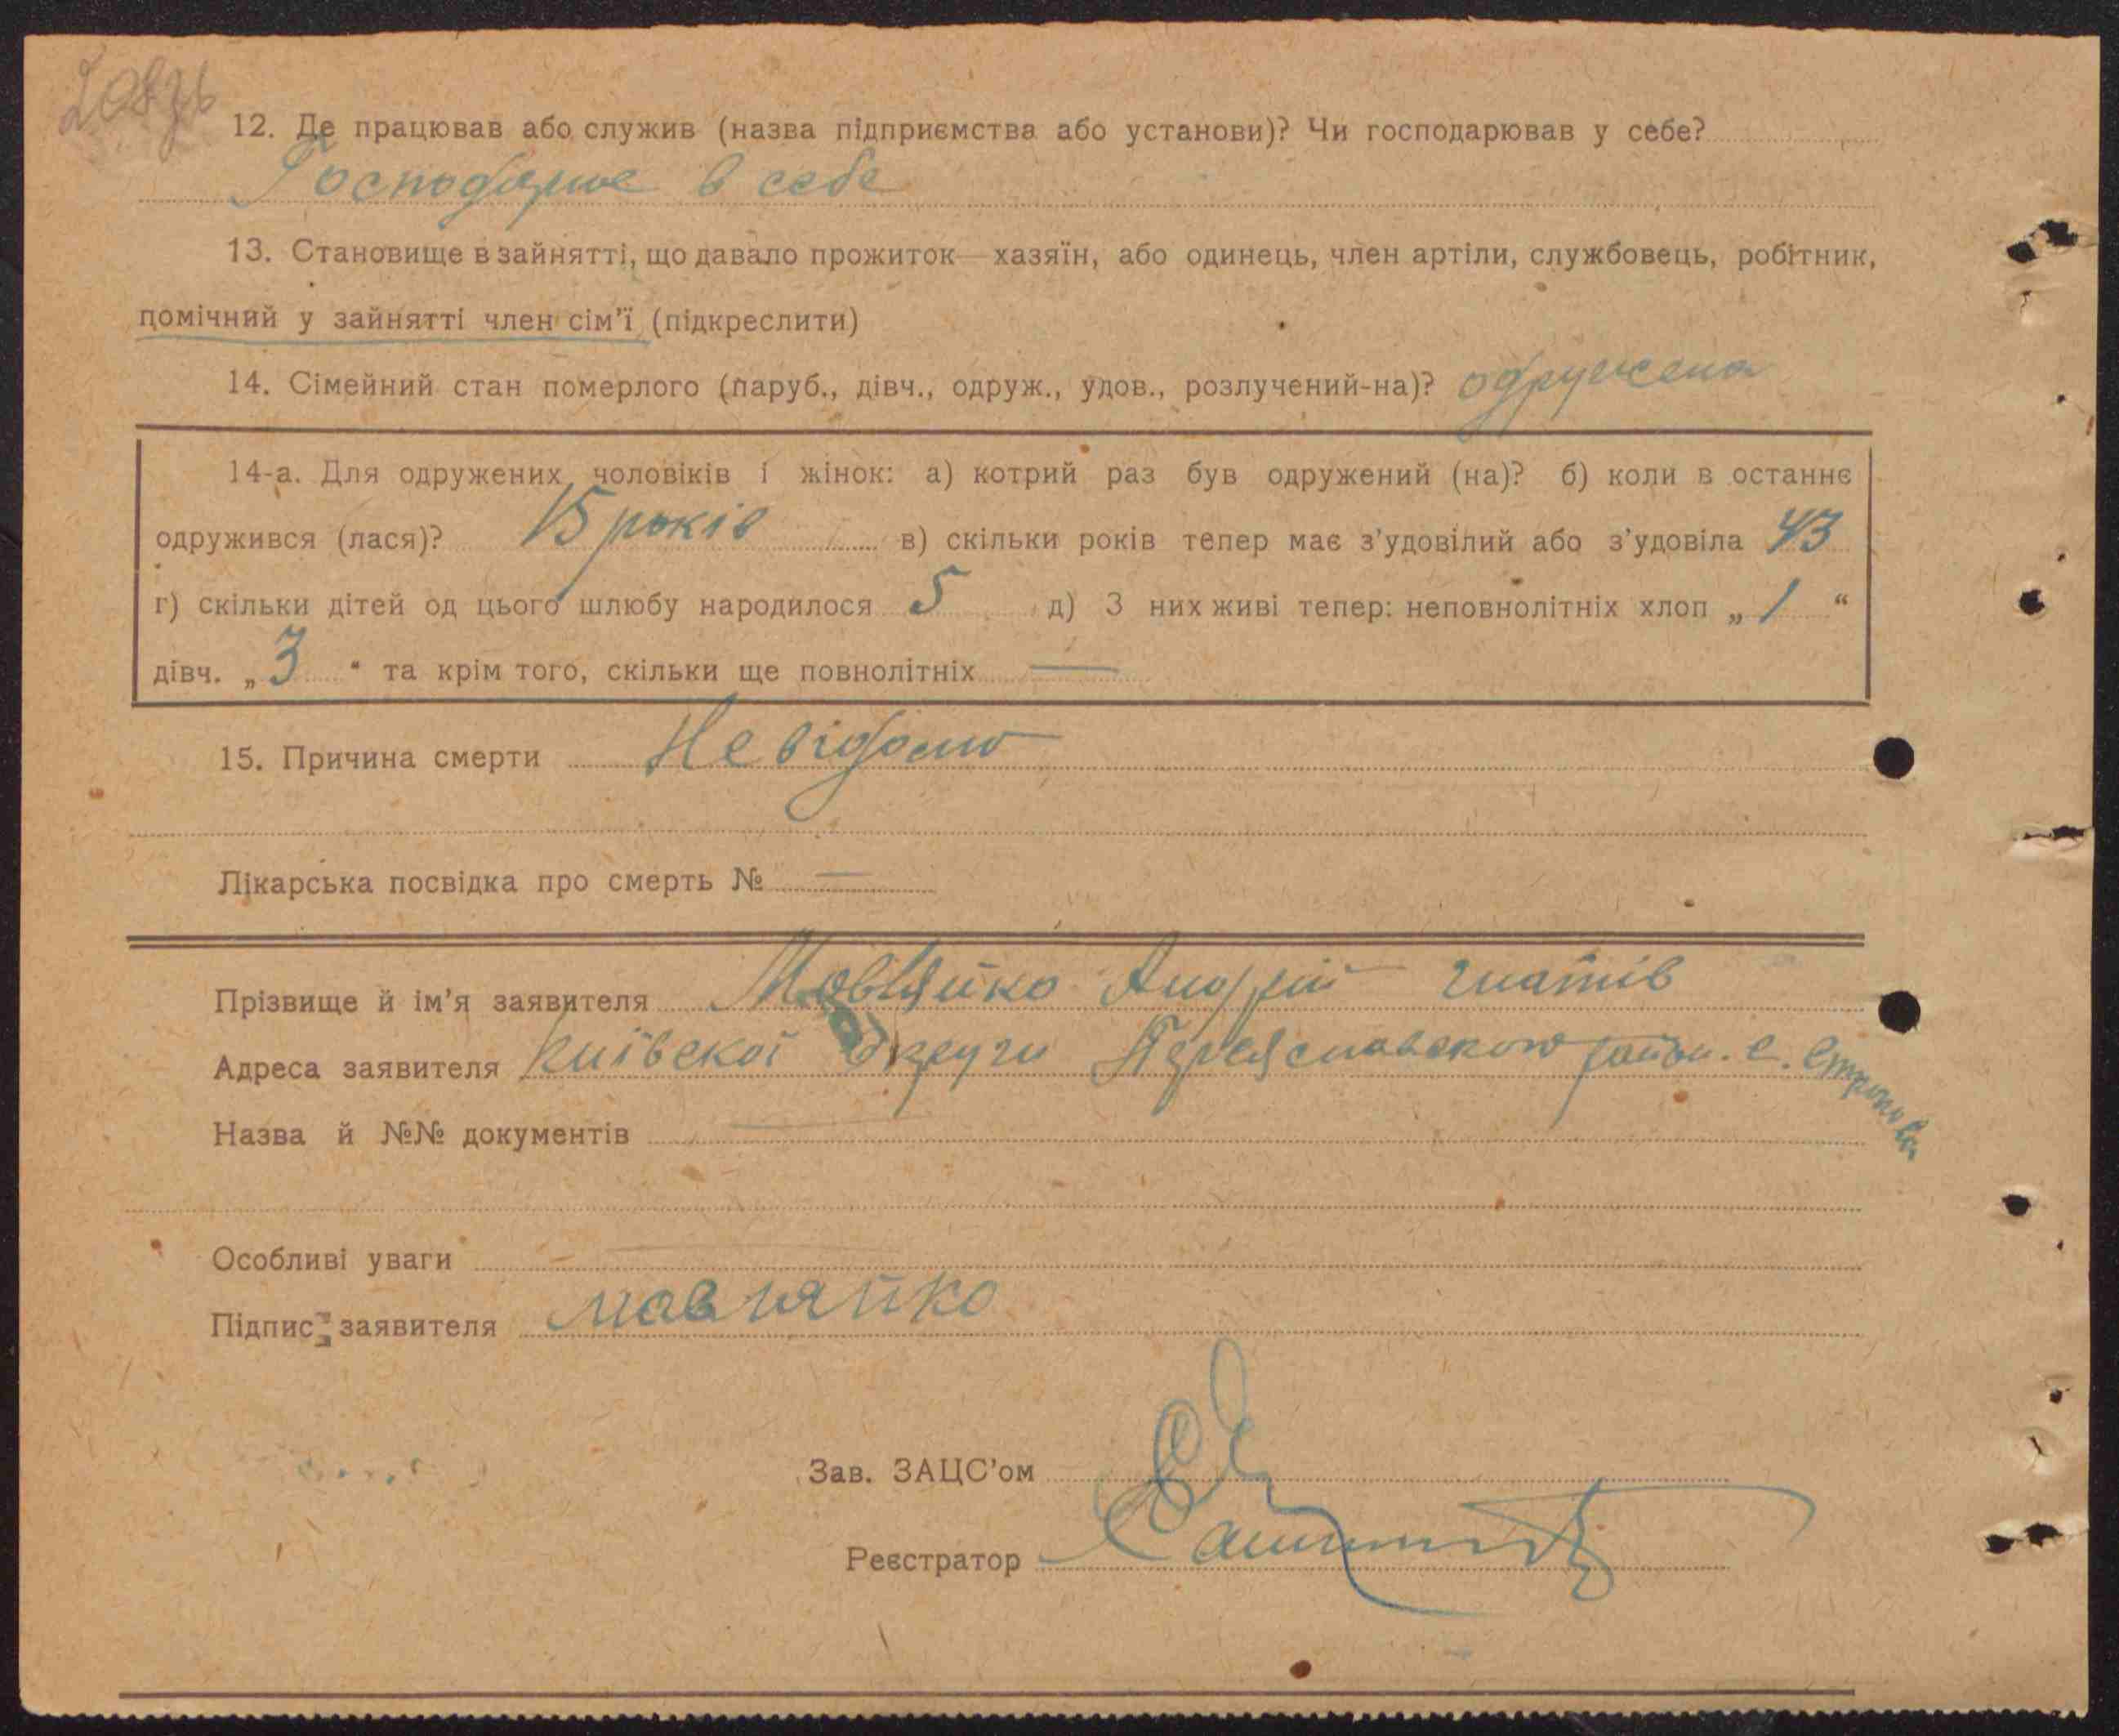 12. Де працював або служив (назва підприємства або установи)? Чи господарював у себе?
Господарює в себе
13. Становище в зайнятті, що давало прожиток—хазяїн, або одинець, член артіли, службовець, робітник,
помічний у зайнятті член сім'ї (підкреслити)
14. Сімейний стан померлого (паруб., дівч., одруж., удов., розлучений-на)? одружена
14-а. Для одружених чоловіків і жінок: а) котрий раз був одружений (на)? б) коли в останнє
одружився (лася)? 15 років в) скільки років тепер має з'удовілий або з'удовіла 43
г) скільки дітей од цього шлюбу народилося 5 д) З них живі тепер: неповнолітніх хлоп „ 1 “
дівч. „ 3 “ та крім того, скільки ще повнолітніх —
15. Причина смерти Не відомо
Лікарська посвідка про смерть № —
Прізвище й ім'я заявителя Мовляйко Андрій Гнатів
Адреса заявителя Київской Округи Переяславского район. с.
Назва й №№ документів —
Особливі уваги —
Підпис заявителя мавляйко
Зав. ЗАЦС'ом
Реєстратор